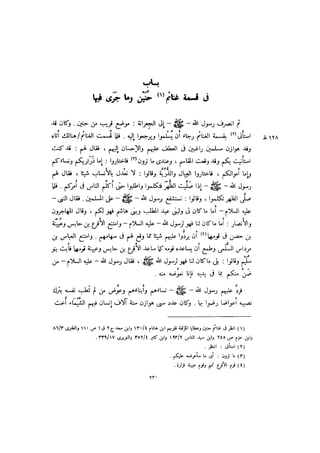 بـاب
فى قسمة غنائم (١) حُنَيْن وما جرَى فيها
ثم انصرف رسول الله - ﷺ - إلى الجِعِرانة : موضع قريب من حنين . وكان قد
استأنَى (٢) بقسمة الغنائم رجاء أن يُسلموا ويرجعوا إليه . فلمّا قُسمت الغنائم هنالك أتاه
١٢٨ ظ
وفد هوازن مسلمين راغبين فى العطف عليهم والإحسان إليهم ، فقال لهم : قد كنت
استأنيت بكم وقد وقعت المقاسم ، وعندى ما ترون (٣) فاختاروا : إما ذَرَاريكم ونساءكم
وإما أموالكم ، فاختاروا العيال والذرّيّة وقالوا : لا نعدل بالأنساب شيئا ، فقال لهم
رسول الله - ﷺ - إذا صلَّيت الظُّهر فتكلموا واطلبوا حتى أكلّم الناس فى أمركم . فلمّا
صلَّى الظهر تكلموا ، وقالوا : نستشفع برسول الله - ﷺ - على المسلمين . فقال النبى -
عليه السلام - أما ما كان لى ولبنى عبد المطلب وبنى هاشم فهو لكم ، وقال المهاجرون
والأنصار : أما ما كان لنا فهو لرسول الله - عليه السلام - وامتنع الأقرع بن حابس وعُيَيْنَة
بن حصن فى قومهما (٤) أن يردُّوا عليهم شيئا مما وقع لهم فى سهامهم . وامتنع العباس بن
مرداس السُّلَمى وطمع أن يساعده قومه كما ساعد الأقرعَ بن حابس وعيينةَ قومهما فأبت بنو
سُلَيْم وقالوا : بلى ما كان لنا فهو لرسول الله ﷺ ، فقال رسول الله - عليه السلام - من
ضَنَّ منكم بما فى يديه فإنا نعوّضه منه .
فردّ عليهم رسول الله - ﷺ - نساءهم وأبناءهم وعوَّض من لم تَطِب نفسه بترك
نصيبه أعواضا رضوا بها . وكان عدد سبى هوازن ستة آلاف إنسان فيهم الشَّيْمَاء أخت
(١) انظر فى غنائم حنين وعطايا المؤلفة قلوبهم ابن هشام ١٣٠/٤ وابن سعد ج٢ ق١ ص ١١٠ والطبرى ٨٦/٣
وابن حزم ص ٢٤٥ وابن سيد الناس ١٩٣/٢ وابن كثير ٣٥٢/٤ والنويرى ٣٣٩/١٧ .
(٢) استأنى : انتظر .
(٣) ما ترون : أى ما سأعوضه عليكم .
(٤) قوم الأقرع تميم وقوم عيينة فزارة .
٢٣٠